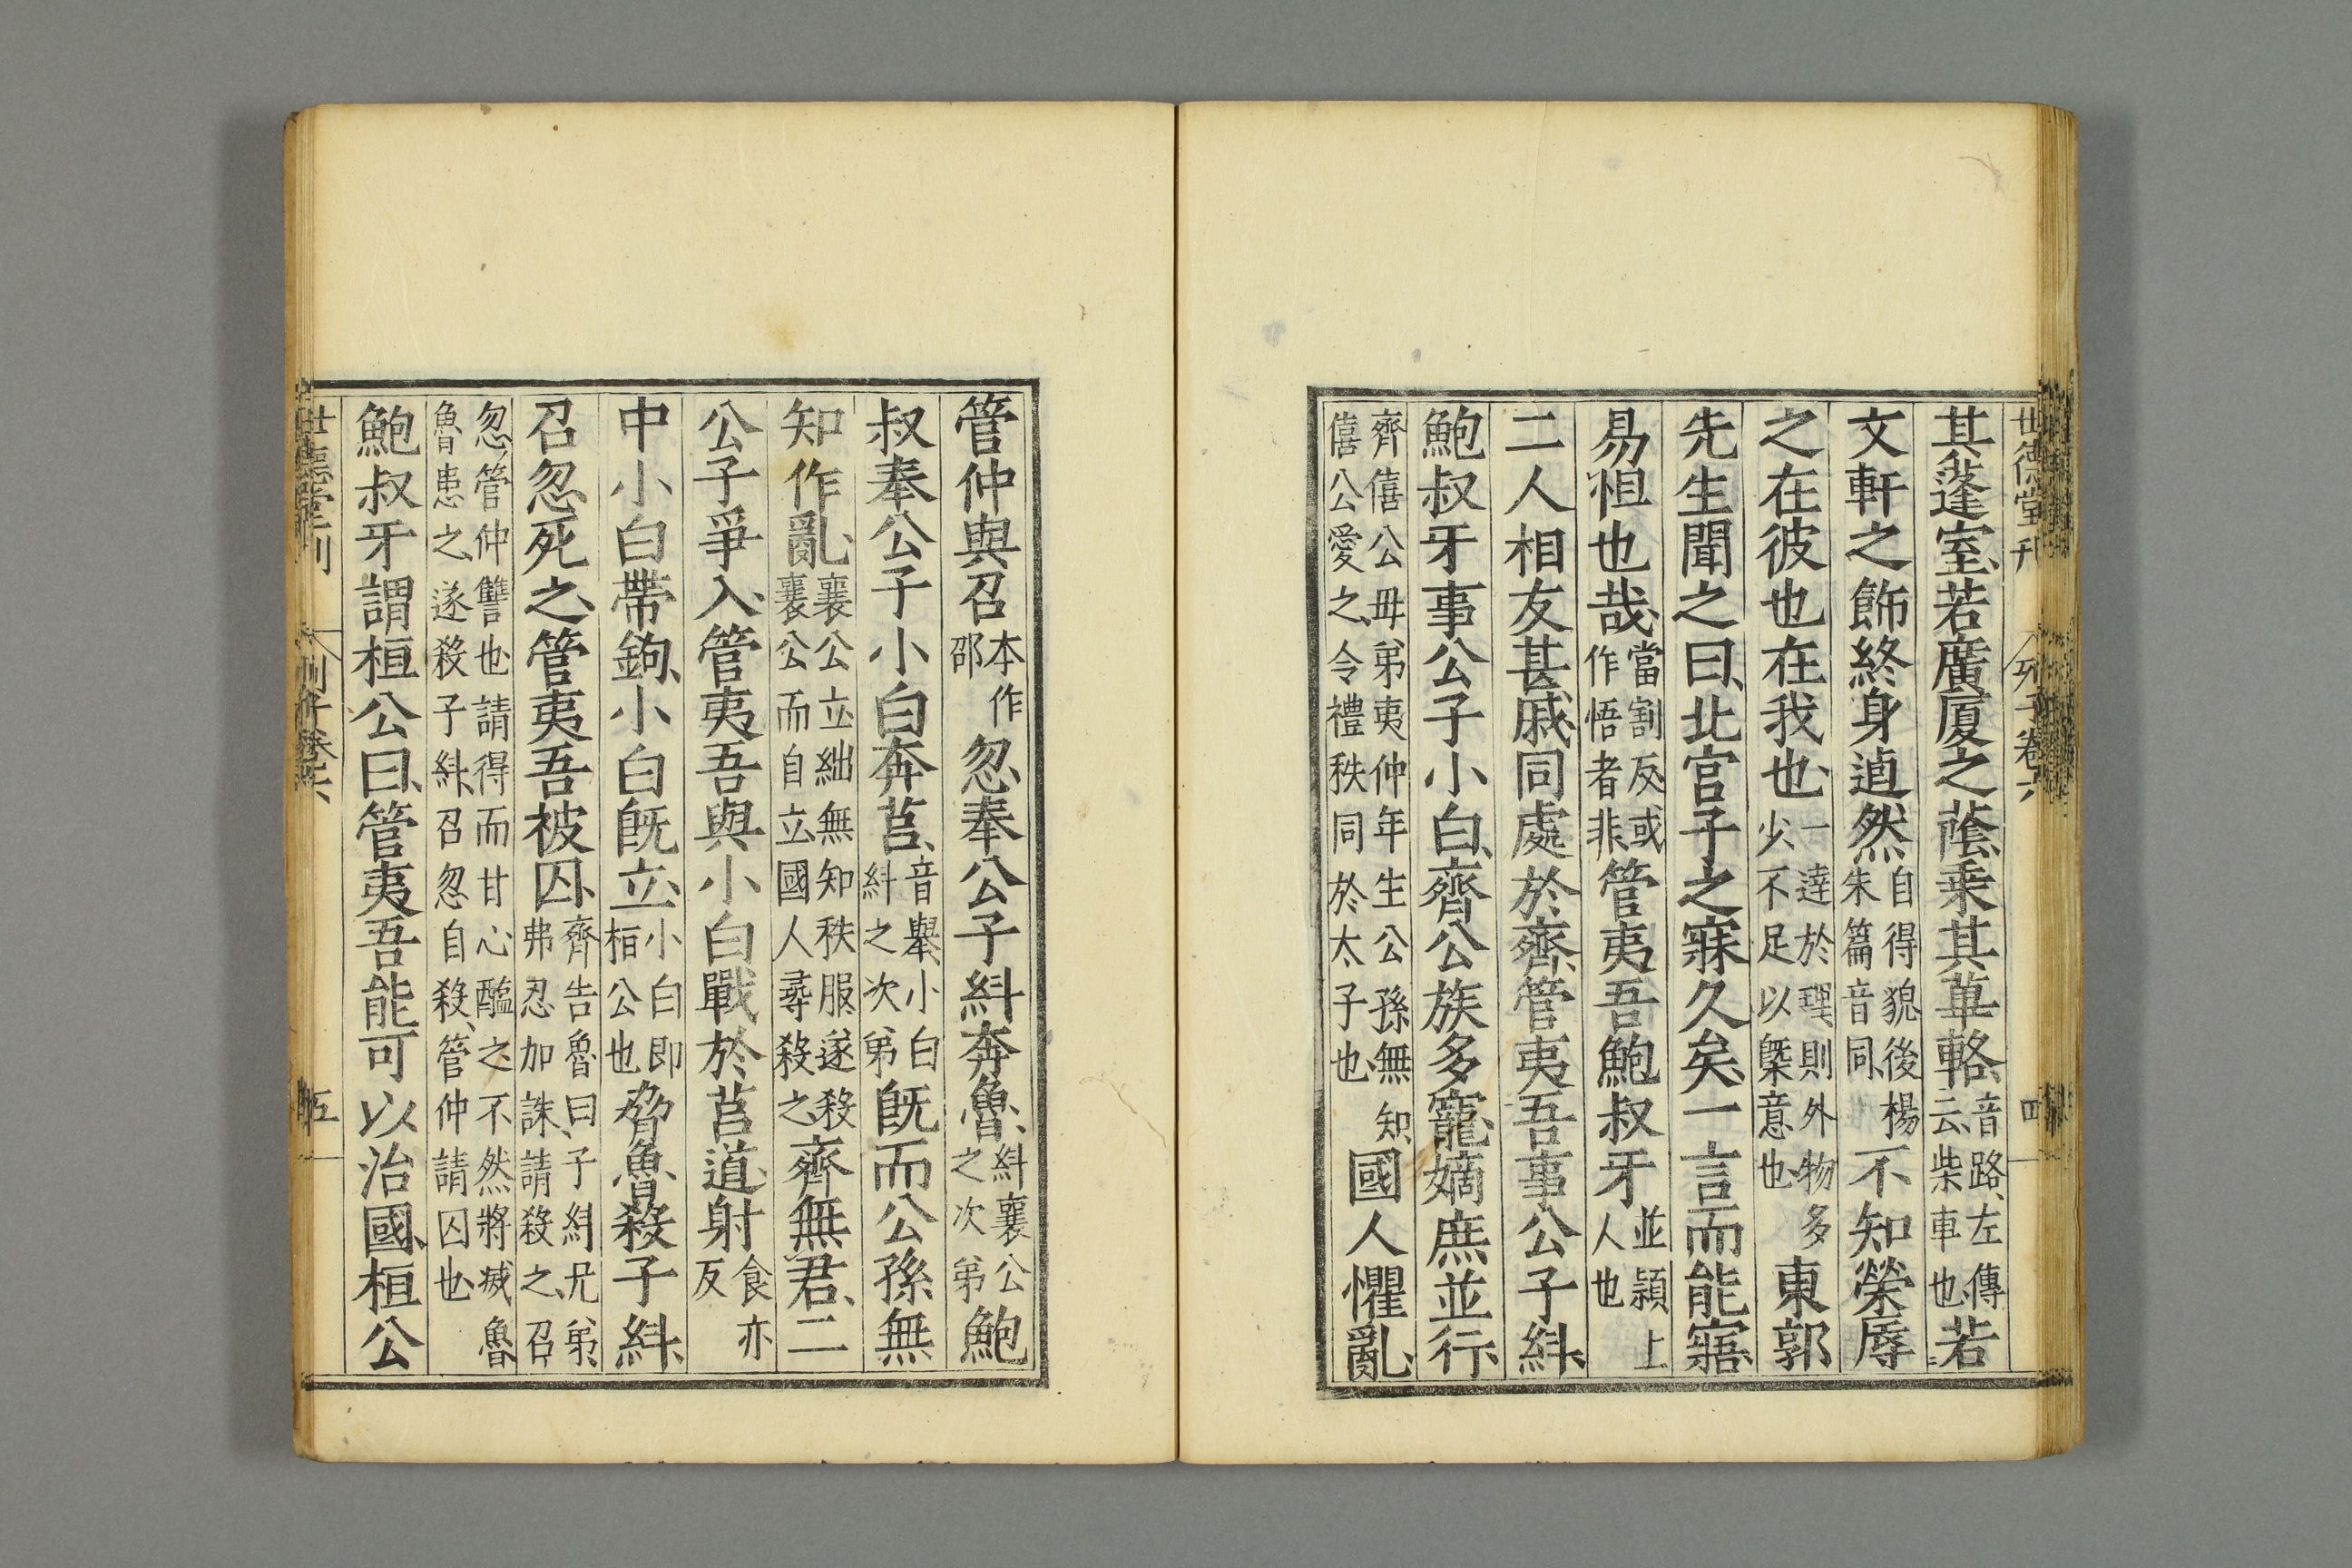 世德堂刊 列子卷六 四
其蓬室若廣厦之蔭乘其蓽輅音路左傳云柴車也若
文軒之飾終身逌然自得貌後楊朱篇音同不知榮辱
之在彼也在我也一達於理則外物多少不足以槩意也東郭
先生聞之曰北宮子之寐久矣一言而能寤
易怛也哉當割反或作悟者非管夷吾鮑叔牙並潁上人也
二人相友甚戚同處於齊管夷吾事公子糾
鮑叔牙事公子小白齊公族多寵嫡庶並行
齊僖公母弟夷仲年生公孫無知僖公愛之令禮秩同於太子也國人懼亂
管仲與召本作邵忽奉公子糾奔魯糾襄公之次弟鮑
叔奉公子小白奔莒音舉小白糾之次弟既而公孫無
知作亂襄公立絀無知秩服遂殺襄公而自立國人尋殺之齊無君二
公子爭入管夷吾與小白戰於莒道射食亦反
中小白帶鉤小白既立小白即桓公也脅魯殺子糾
召忽死之管夷吾被囚齊告魯曰子糾兄弟弗忍加誅請殺之召
忽管仲讐也請得而甘心醢之不然將滅魯魯患之遂殺子糾召忽自殺管仲請囚也
鮑叔牙謂桓公曰管夷吾能可以治國桓公
世德堂刊 列子卷六 五